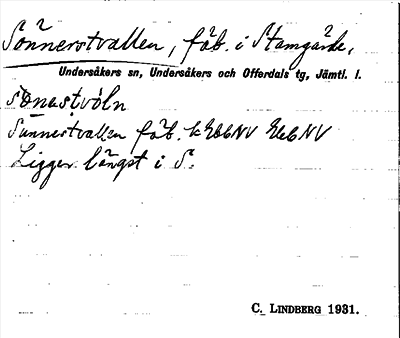 Sönnerstvallen, fäb. i Stamgärde,
Undersåkers sn, Undersåkers och Offerdals tg, Jämtl. l.
sønastvöln
Sunnestvallen fäb.
Ligger längst i S.
C. LINDBERG 1931.